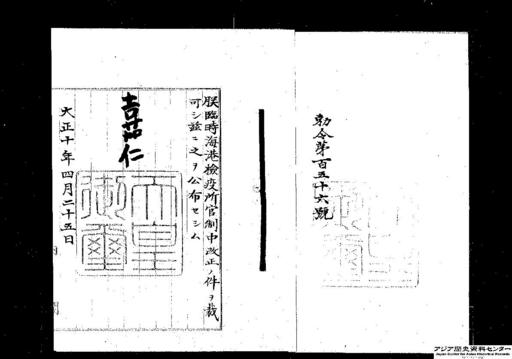 勅令第百五十六號
朕臨時海港檢疫所官制中改正ノ件ヲ裁
可シ茲ニ之ヲ公布セシム
嘉仁
大正十年四月二十五日
天皇
御璽
アジア歴史資料センター
Japan Center for Asian Historical Records